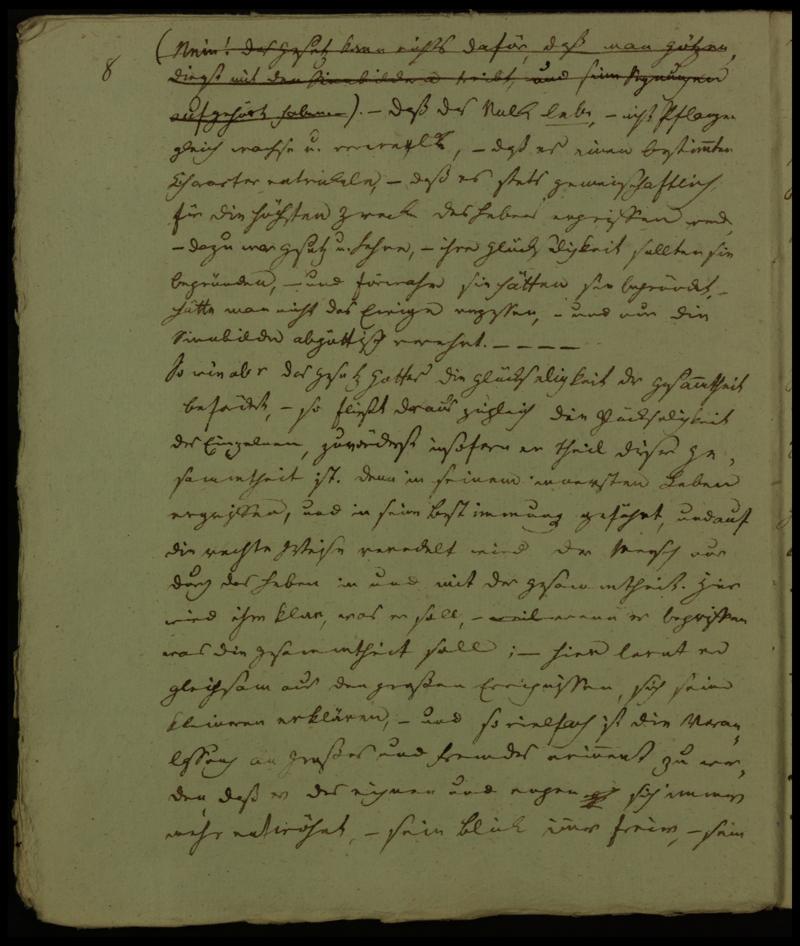 8
(Nein! das Gesetz kann nichts dafür, daß man Götzen
dienst mit den Sinnbildern treibt, und seine Segnungen
aufgehört haben). – daß das Volk lebe, – nicht Pflanzen
gleich wachse u. verwelke, – daß es einen bestimmten
Character entwickele, – daß es stets gemeinschaftlich
für die höchsten Zwecke des Lebens ergriffen werde,
– dazu war Gesetz u. Lehre, – ihre Glückseligkeit sollten sie
begründen, – und fürwahr sie hätten sie begründet, –
hätte man nicht das Ewige vergessen, – und nur die
Sinnbilder abgöttisch verehrt. – – – –
So wie aber das Gesetz Gottes die Glückseligkeit der Gesammtheit
befördert, – so fließt draus zugleich die Glückseligkeit
des Einzelnen, zuvörderst insofern er Theil dieser Ge-
sammtheit ist. denn in seinem innersten Leben
ergriffen, und in seine Bestimmung geführt, und auf
die rechte Weise veredelt wird der Mensch nur
durch das Leben in und mit der Gesammtheit. Hier
wird ihm klar, was er soll, – weil wenn er begriffen
was die Gesammtheit soll; – hier lernt er
gleichsam aus den großen Ereignissen, sich seine
kleineren erklären, – und so vielfach ist die Veran-
lassung an Großes und Fremdes erinnert zu wer-
den, daß er des eignen und engen sich immer
mehr entwöhnt, – sein Blick immer freier, – sein